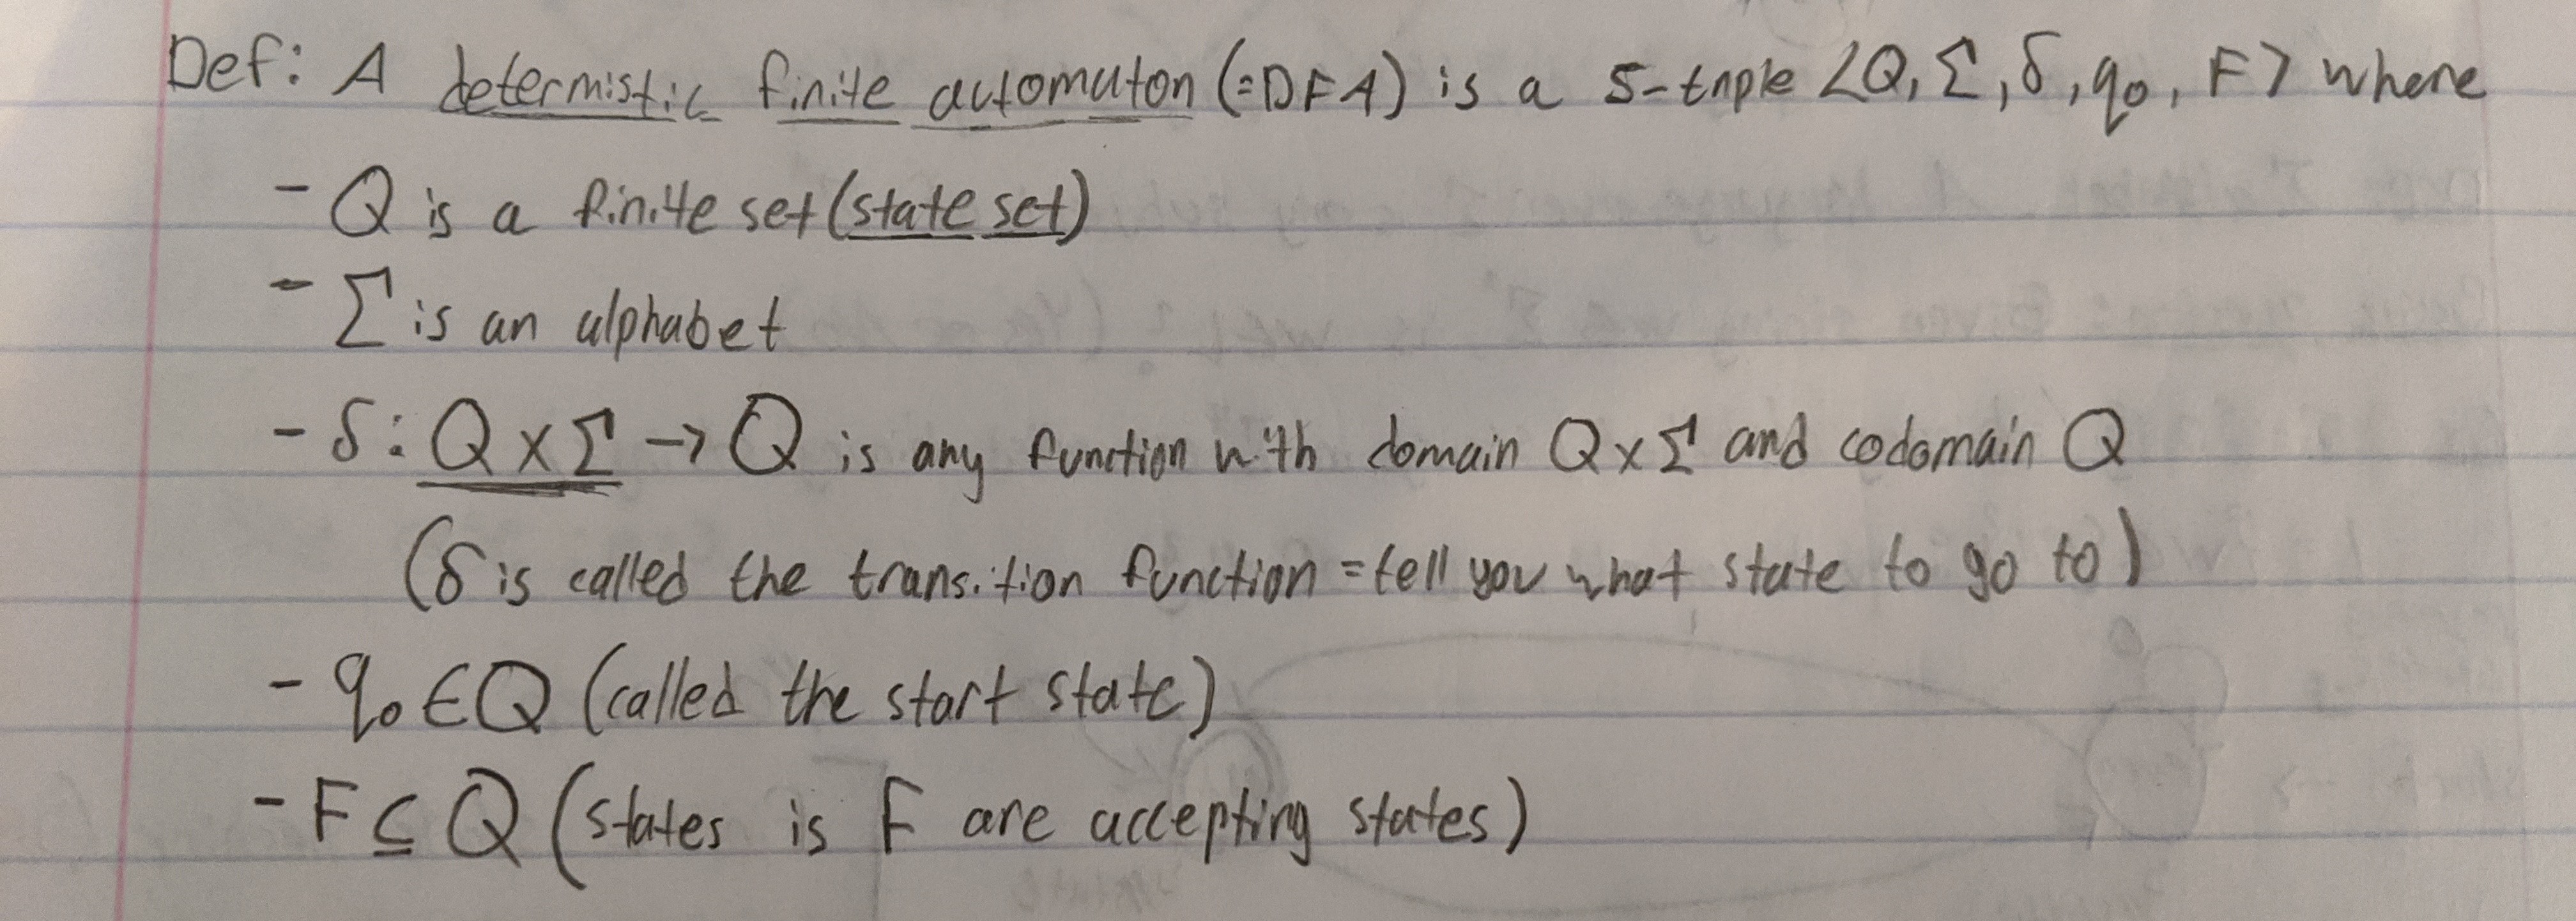 Def: A determistic finite automaton (=DFA) is a 5-tuple <Q, Σ, δ, q₀, F> where
- Q is a finite set (state set)
- Σ is an alphabet
- δ: Q x Σ → Q is any function with domain Q x Σ and codomain Q
(δ is called the transition function = tell you what state to go to)
- q₀ ∈ Q (called the start state)
- F ⊆ Q (states is F are accepting states)